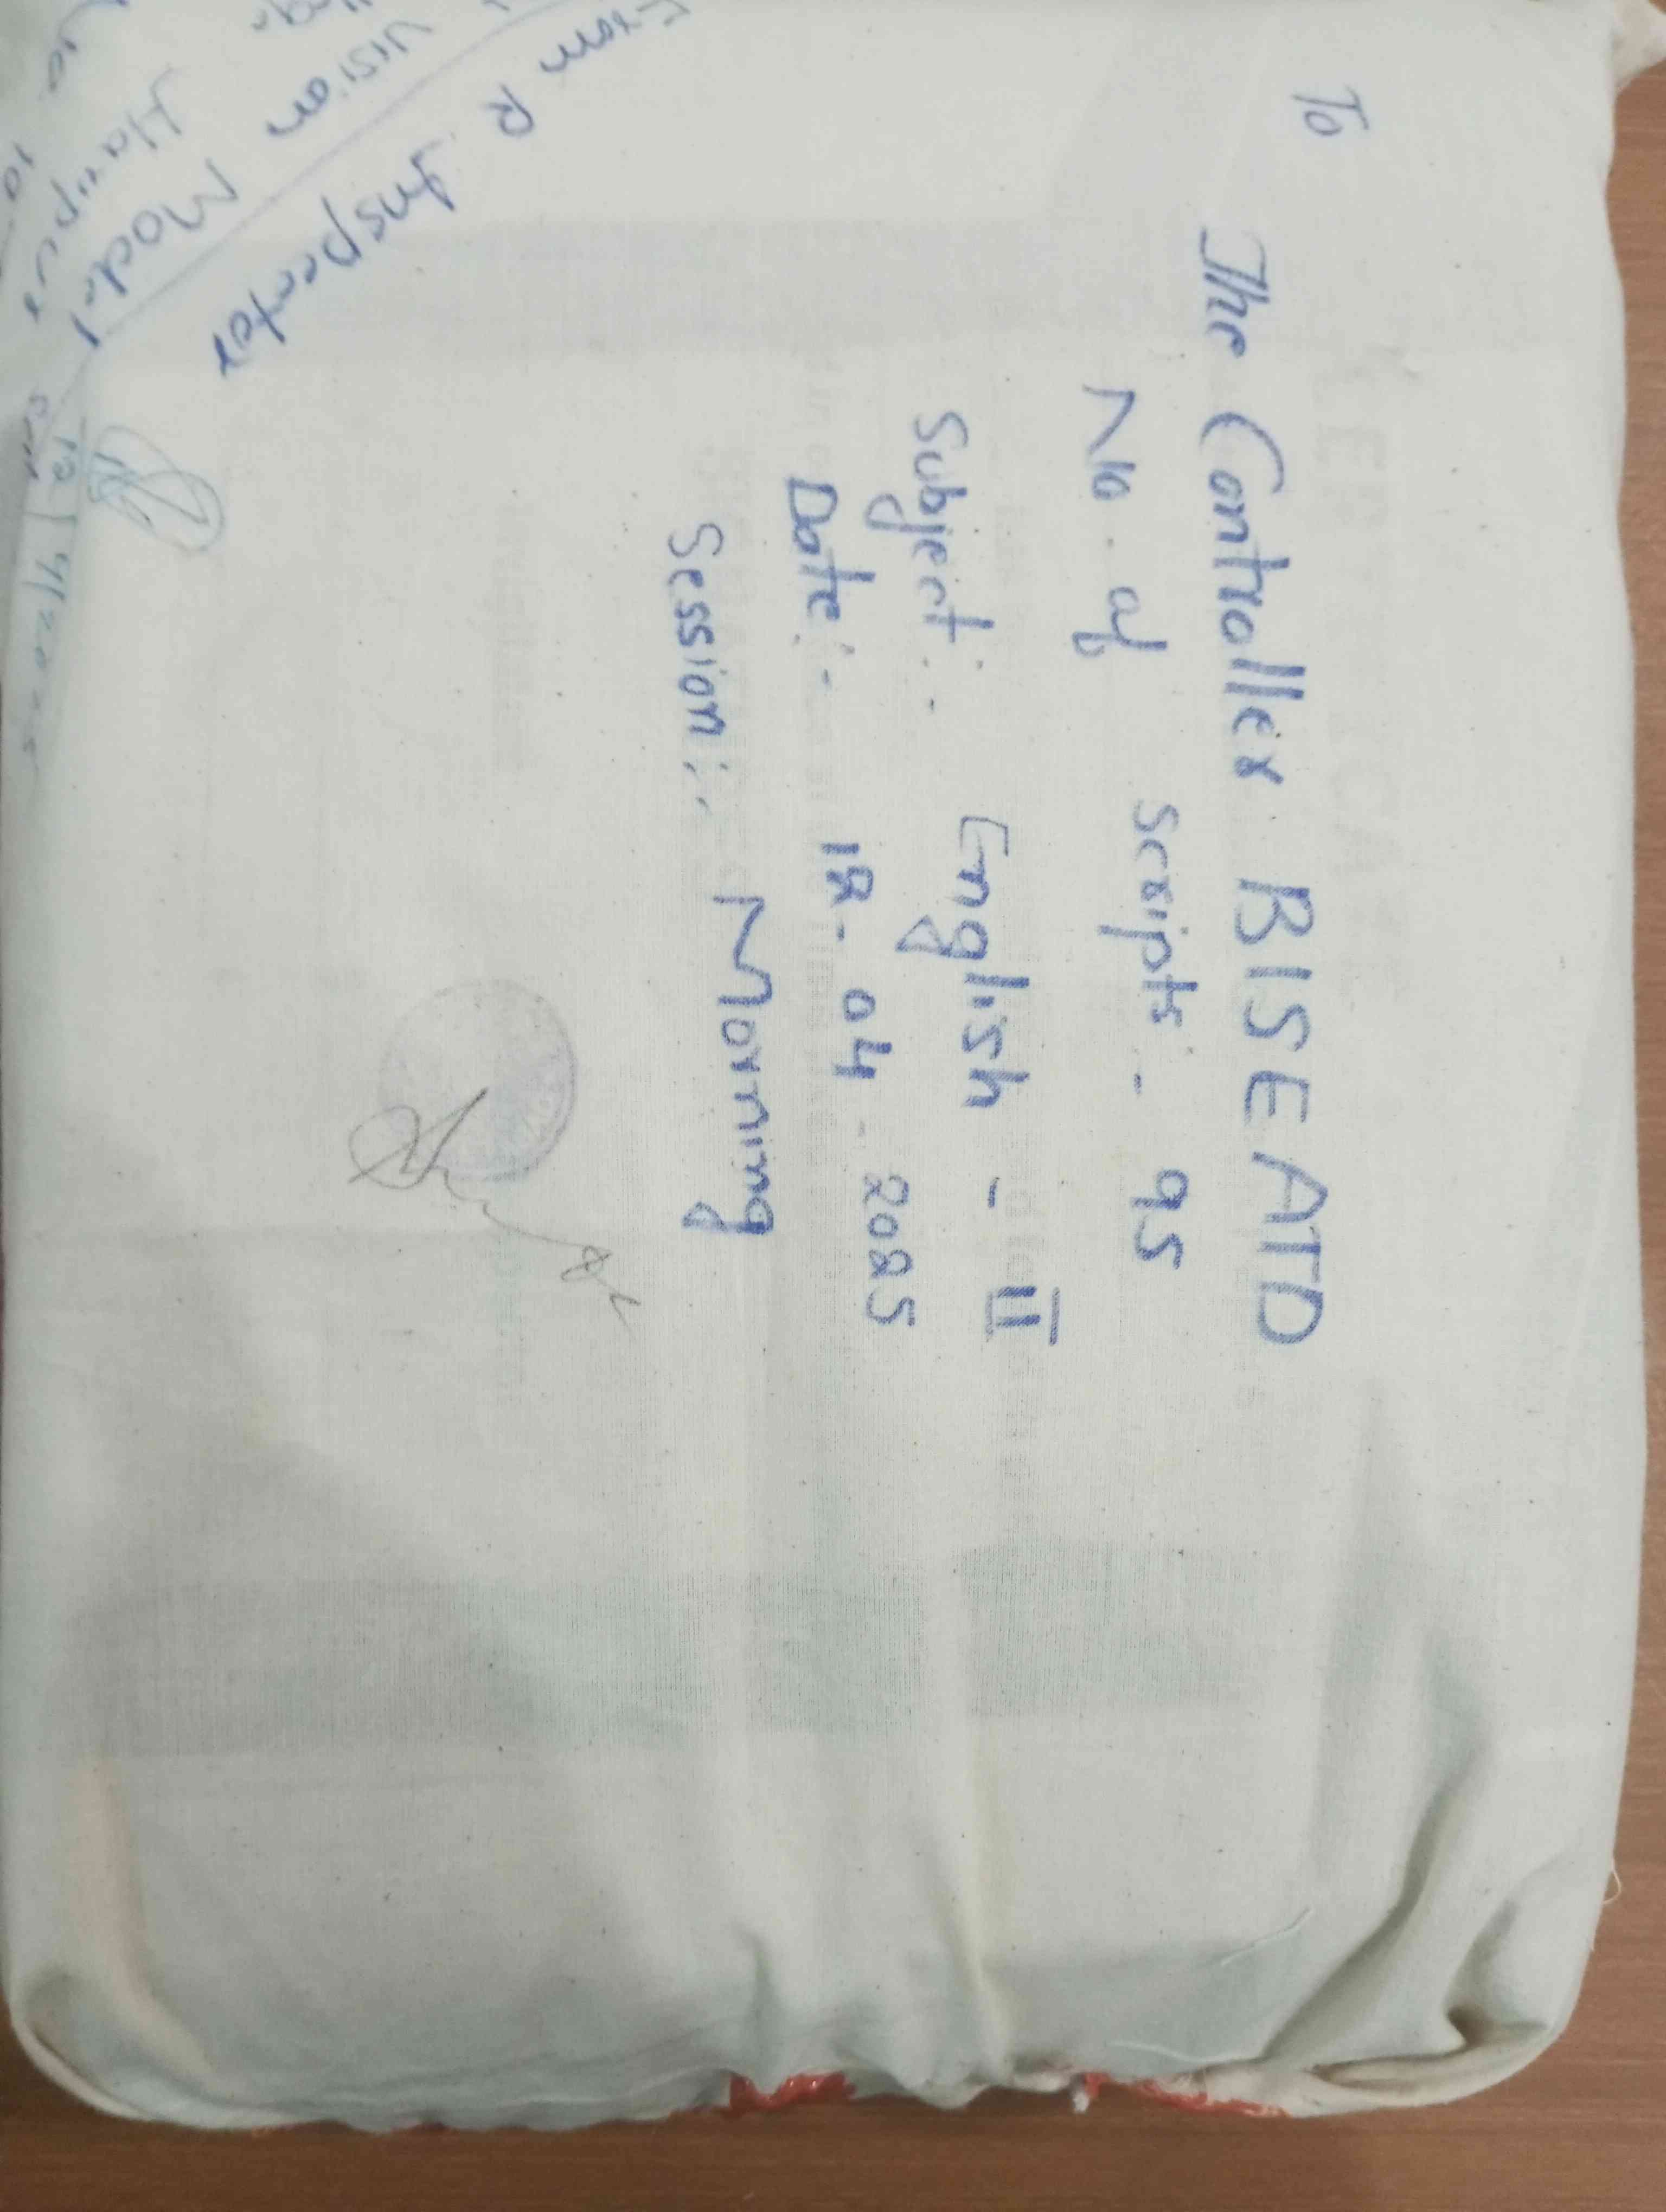 To
The Controller BISE ATD
No. of scripts :- 95
Subject :- English - II
Date :- 12-04-2025
Session :- Morning
R. Inspector
Vision Model
Haripur
12/4/2025